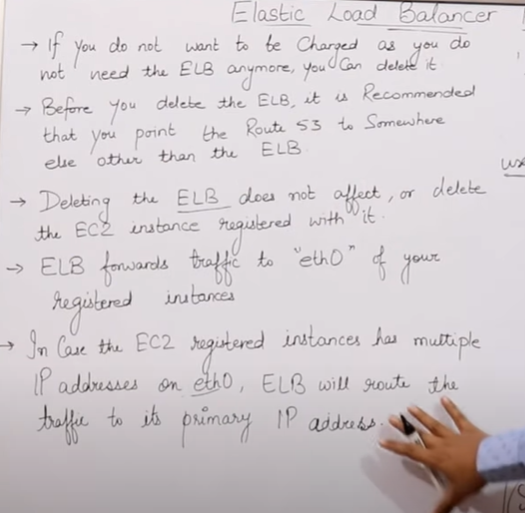 Elastic Load Balancer
→ If you do not want to be Charged as you do
not need the ELB anymore, you Can delete it
→ Before you delete the ELB, it is Recommended
that you point the Route 53 to Somewhere
else other than the ELB
→ Deleting the ELB does not affect, or delete
the EC2 instance registered with it.
→ ELB forwards traffic to "eth0" of your
registered instances
→ In Case the EC2 registered instances has multiple
IP addresses on eth0, ELB will route the
traffic to its primary IP address.